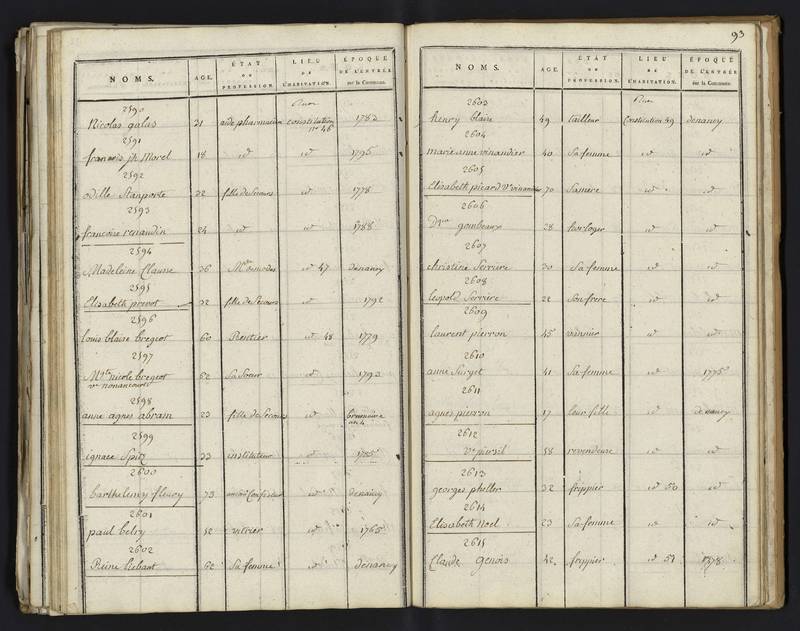 NOMS. AGE. ÉTAT OU PROFESSION. LIEU DE L'HABITATION. ÉPOQUE DE L'ENTRÉE sur la Commune.
Rue
2590
Nicolas galas 31 aide pharmacien constitution nº 46 1783
2591
françois ph Morel 18 id id 1795
2592
odille Stanporte 32 fille de Secours id 1778
2593
francoise renaudin 24 id id 1788
2594
Madeleine Clausse 36 Mde de modes id 47 denancy
2595
Elisabeth prevot 32 fille de Secours id 1792
2596
louis blaise bregeot 60 Rentier id 48 1779
2597
nicole bregeot 62 Sa Soeur id 1793
ve nonancourt
2598
anne agnes abram 23 fille de Secours id brumaire an 4
2599
ignace Spitz 33 instituteur id 1785
2600
barthelemy fleury 73 ancien Confiseur id denancy
2601
paul belry 52 vitrier id 1765
2602
Reine 62 Sa femme id denancy
93
NOMS. AGE. ÉTAT OU PROFESSION. LIEU DE L'HABITATION. ÉPOQUE DE L'ENTRÉE sur la Commune.
Rue
2603
henry blaise 49 tailleur Constitution 49 denancy
2604
marie anne vinandier 40 Sa femme id id
2605
Elisabeth picard ve vinandier 70 Sa mere id id
2606
gombeaux 28 horloger id id
2607
christine Serriere 30 Sa femme id id
2608
leopold Serriere 22 Son frere id id
2609
laurent pierron 45 vannier id id
2610
anne 41 Sa femme id 1775
2611
agnes pierron 17 leur fille id denancy
2612
ve pursil 58 revendeuse id id
2613
georges pheller 32 frippier id 50 id
2614
Elisabeth Noel 23 Sa femme id id
2615
Claude Genois 42 frippier id 51 1778